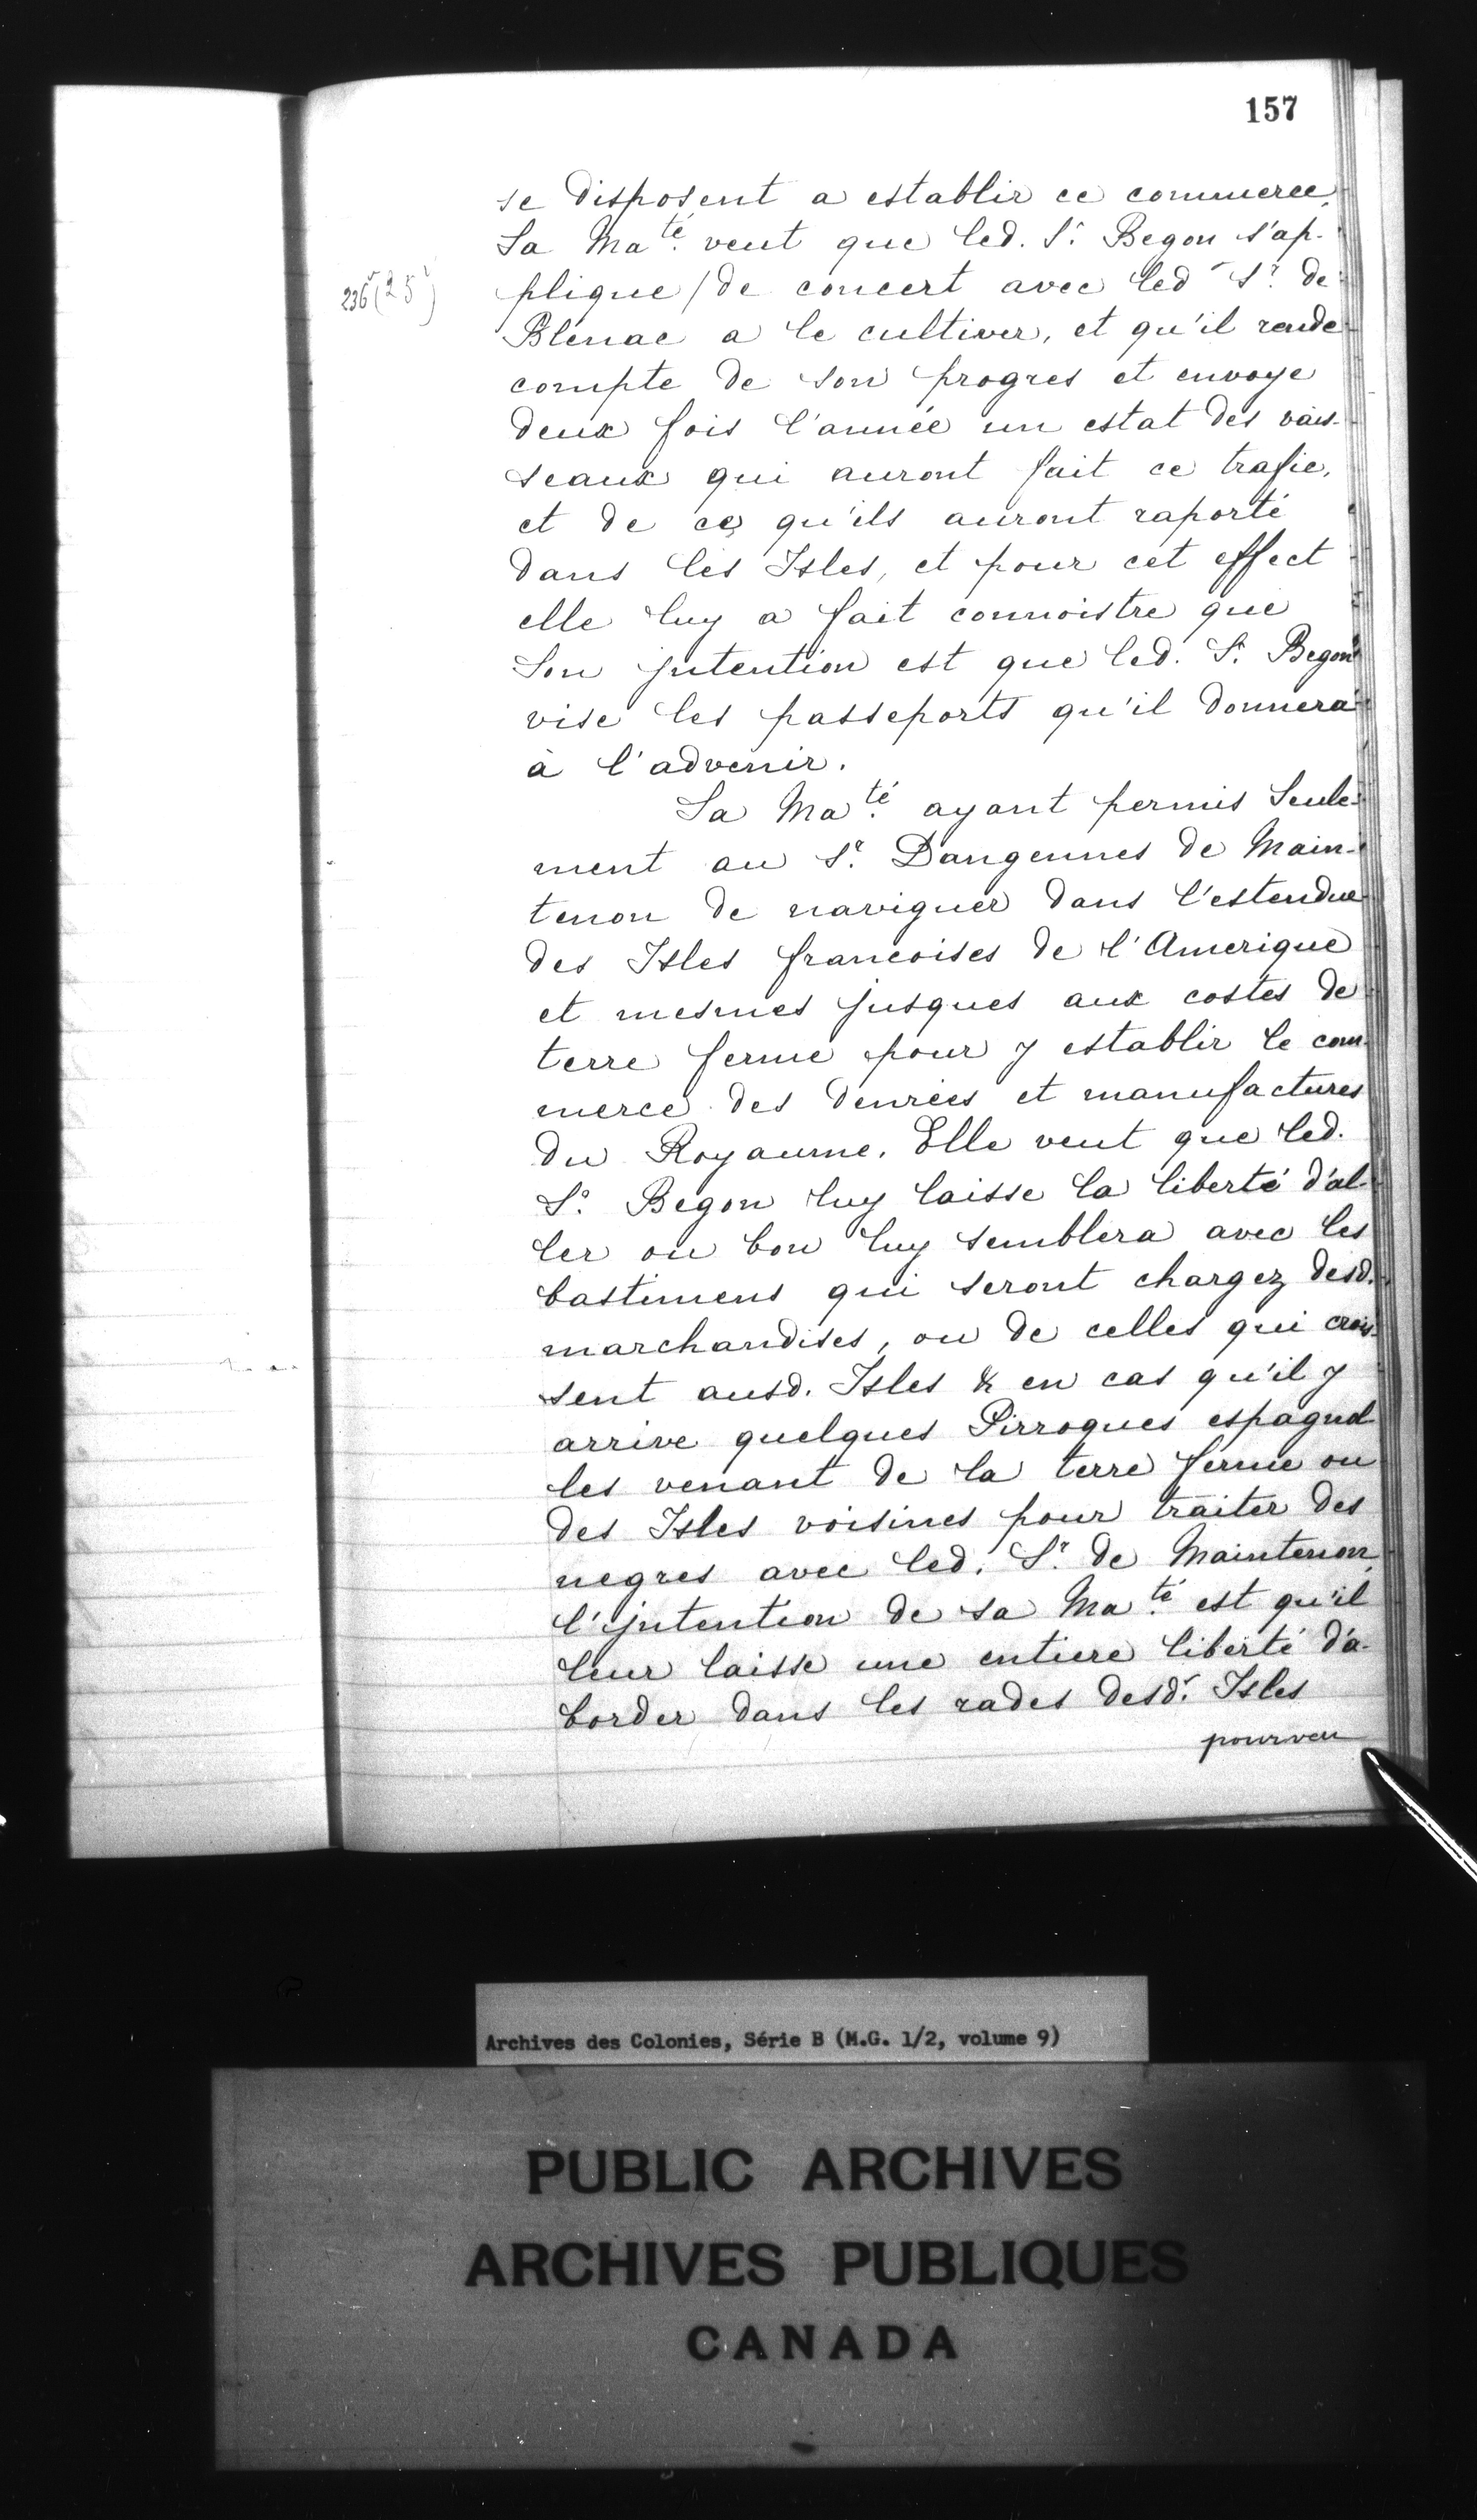 157
se disposent a establir ce commerce,
Sa Ma.té veut que led. Sr. Begon s'ap-
236v (25v)
plique / de concert avec led Sr. de
Blenac a le cultiver, et qu'il rende
compte de son progres et envoye
deux fois l'année un estat des vais-
seaux qui auront fait ce trafic,
et de ce qu'ils auront raporté
dans les Isles, et pour cet effect
elle luy a fait connoistre que
son jntention est que led. Sr. Begon
vise les passeports qu'il donnera
à l'advenir.
Sa Ma.té ayant permis seule-
ment au Sr. Dangennes de Main-
tenon de naviguer dans l'estendue
des Isles francoises de l'Amerique
et mesmes jusques aux costes de
terre ferme pour y establir le com-
merce des denrées et manufactures
du Royaume. Elle veut que led.
Sr. Begon luy laisse la liberté d'al-
ler ou bon luy semblera avec les
bastimens qui seront chargez desd.
marchandises, ou de celles qui crois-
sent ausd. Isles & en cas qu'il y
arrive quelques Pirrogues espagnol-
les venant de la terre ferme ou
des Isles voisines pour traiter des
negres avec led. Sr. de Maintenon,
l'jntention de sa Ma.té est qu'il
leur laisse une entiere liberté d'a-
border dans les rades desd. Isles
pourveu
Archives des Colonies, Série B (M.G. 1/2, volume 9)
PUBLIC ARCHIVES
ARCHIVES PUBLIQUES
CANADA